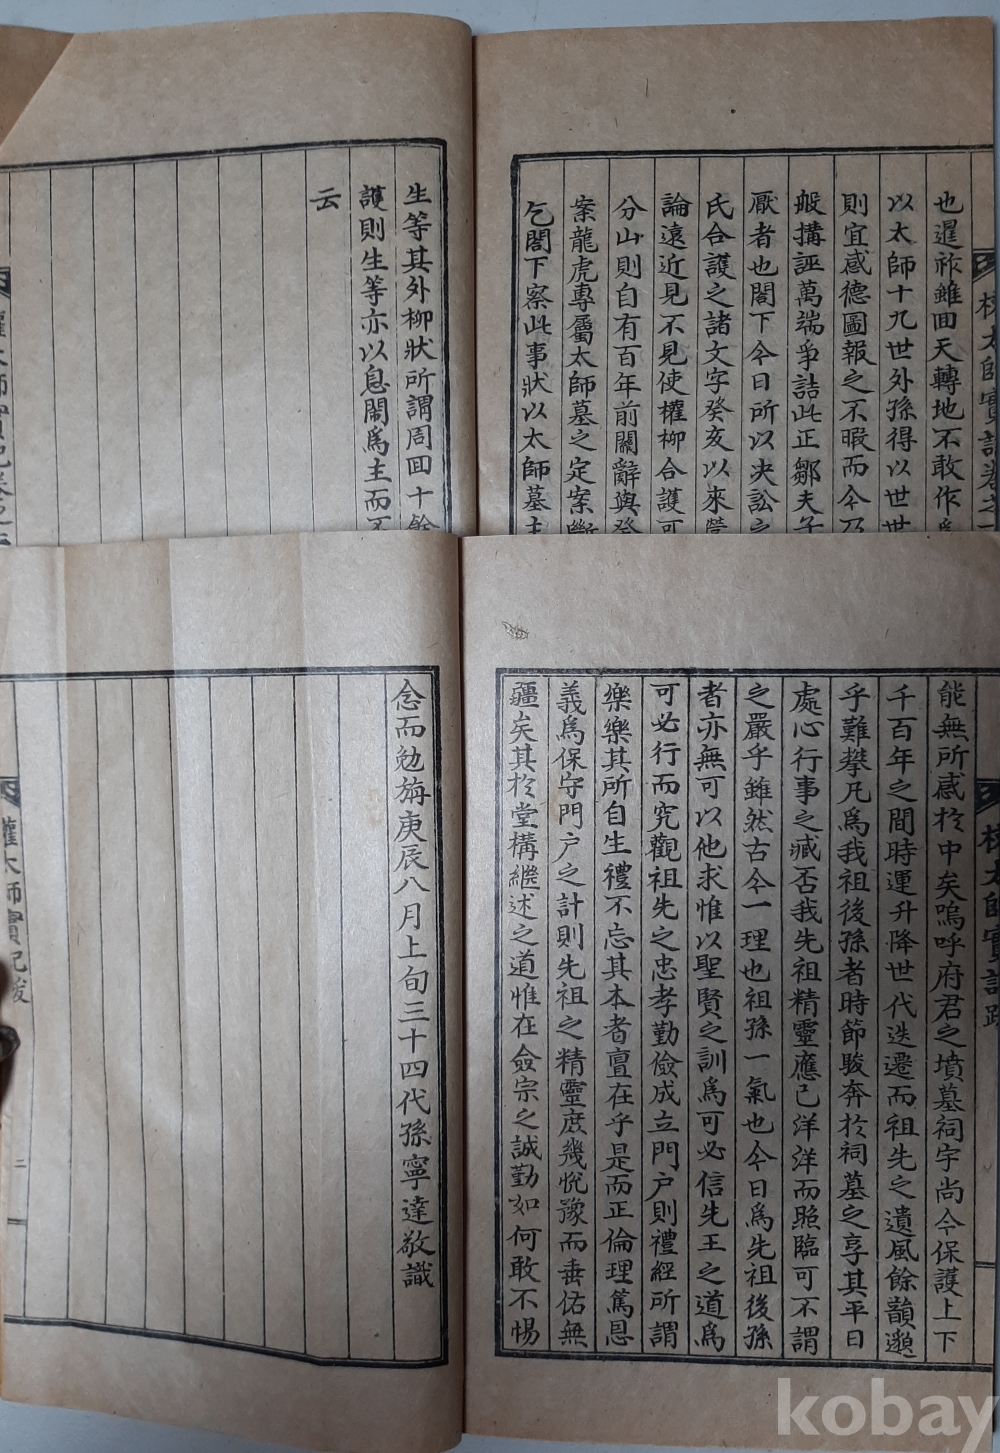 也遲祚雖回天轉地不敢作
以太師十九世外孫得以世世
則宜感德圖報之不暇而今乃
般搆誣萬端爭詰此正鄒夫子
厭者也閤下今日所以决訟之
氏合護之諸文字癸亥以來
論遠近見不見使權柳合護可
分山則自有百年前關辭與癸
案龍虎專屬太師墓之定案斷
乞閤下察此事狀以太師墓主
生等其外柳狀所謂周回十餘
護則生等亦以息閙爲主而
云
權太師實記卷之
能無所感於中矣嗚呼府君之墳墓祠宇尚今保護上下
千百年之間時運升降世代迭遷而祖先之遺風餘韻邈
乎難攀凡爲我祖後孫者時節駿奔於祠墓之享其平日
處心行事之臧否我先祖精靈應已洋洋而照臨可不謂
之嚴乎雖然古今一理也祖孫一氣也今日爲先祖後孫
者亦無可以他求惟以聖賢之訓爲可必信先王之道爲
可必行而究觀祖先之忠孝勤儉成立門户則禮經所謂
樂樂其所自生禮不忘其本者亶在乎是而正倫理篤恩
義爲保守門户之計則先祖之精靈庶幾悅豫而垂佑無
疆矣其於堂構繼述之道惟在僉宗之誠勤如何敢不惕
念而勉旃庚辰八月上旬三十四代孫寧達敬識
權太師實記跋
二
kobay